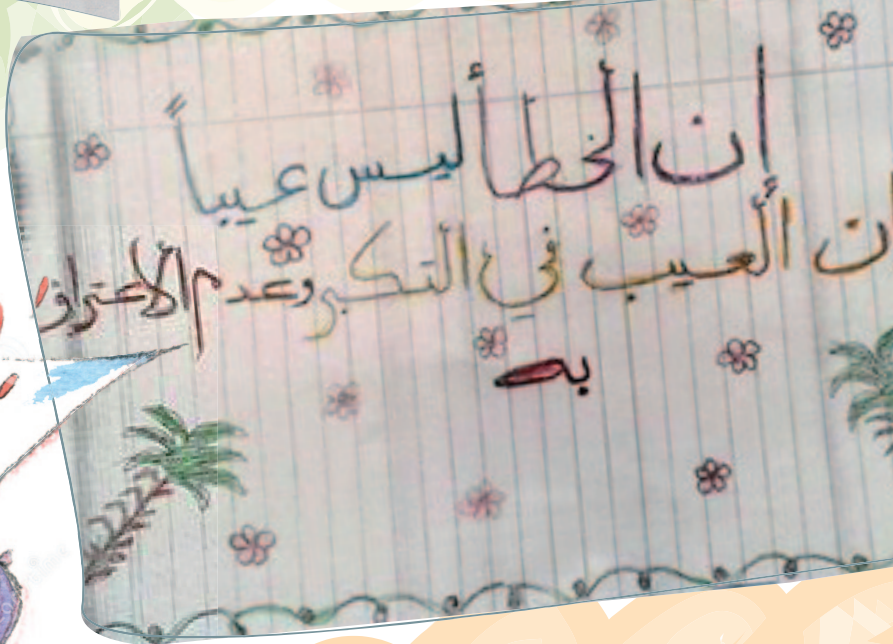 ان الخطأ ليس عيباً
ان ألعيب في التكبر وعدم الاعتراف
به